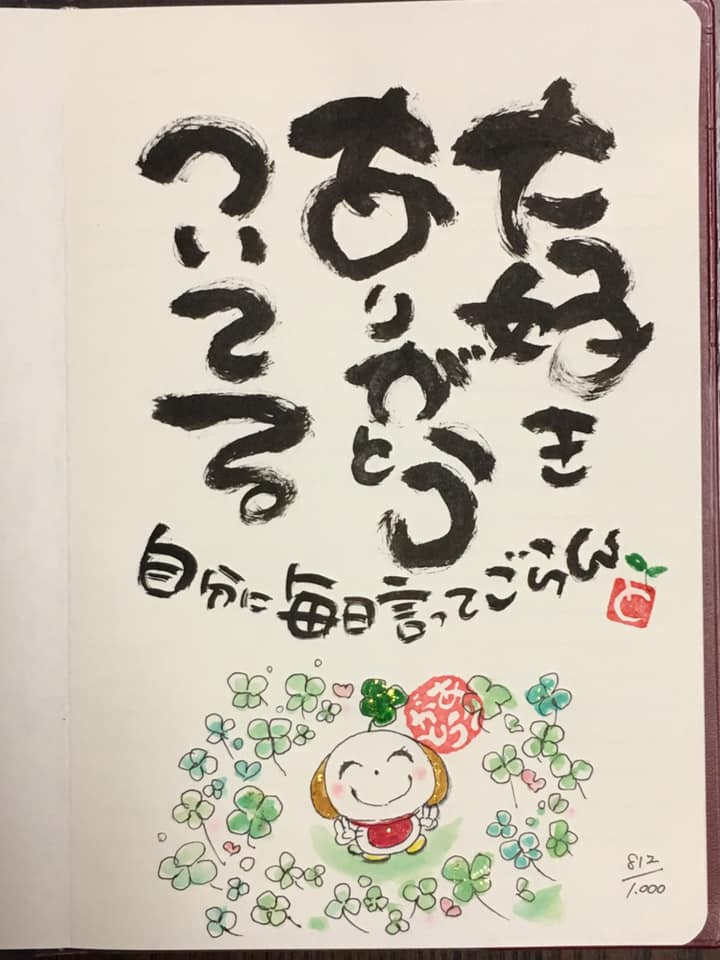 大好き
ありがとう
ついてる。
自分に毎日言ってごらん
と
812/1.000